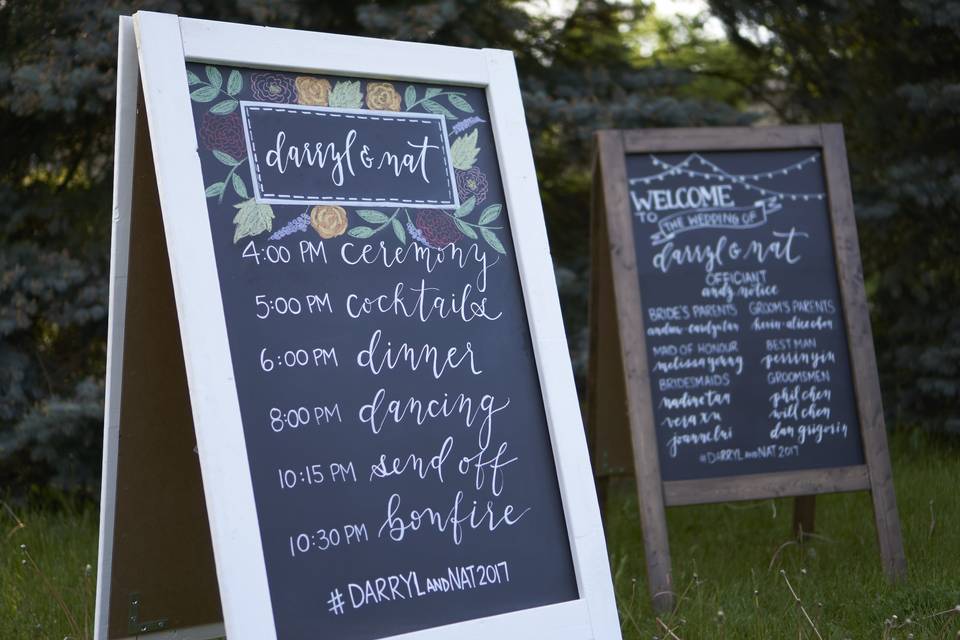 darryl & nat
4:00 PM ceremony
5:00 PM cocktails
6:00 PM dinner
8:00 PM dancing
10:15 PM send off
10:30 PM bonfire
#DARRYLANDNAT2017
WELCOME
TO THE WEDDING OF
darryl & nat
OFFICIANT
andy notice
BRIDE'S PARENTS
GROOM'S PARENTS
kevin + alice chen
MAID OF HONOUR
melissa wang
BEST MAN
perrin yin
BRIDESMAIDS
nadine tan
vera xu
joanne lui
GROOMSMEN
phil chen
will chen
dan grigorin
#DARRYLANDNAT2017